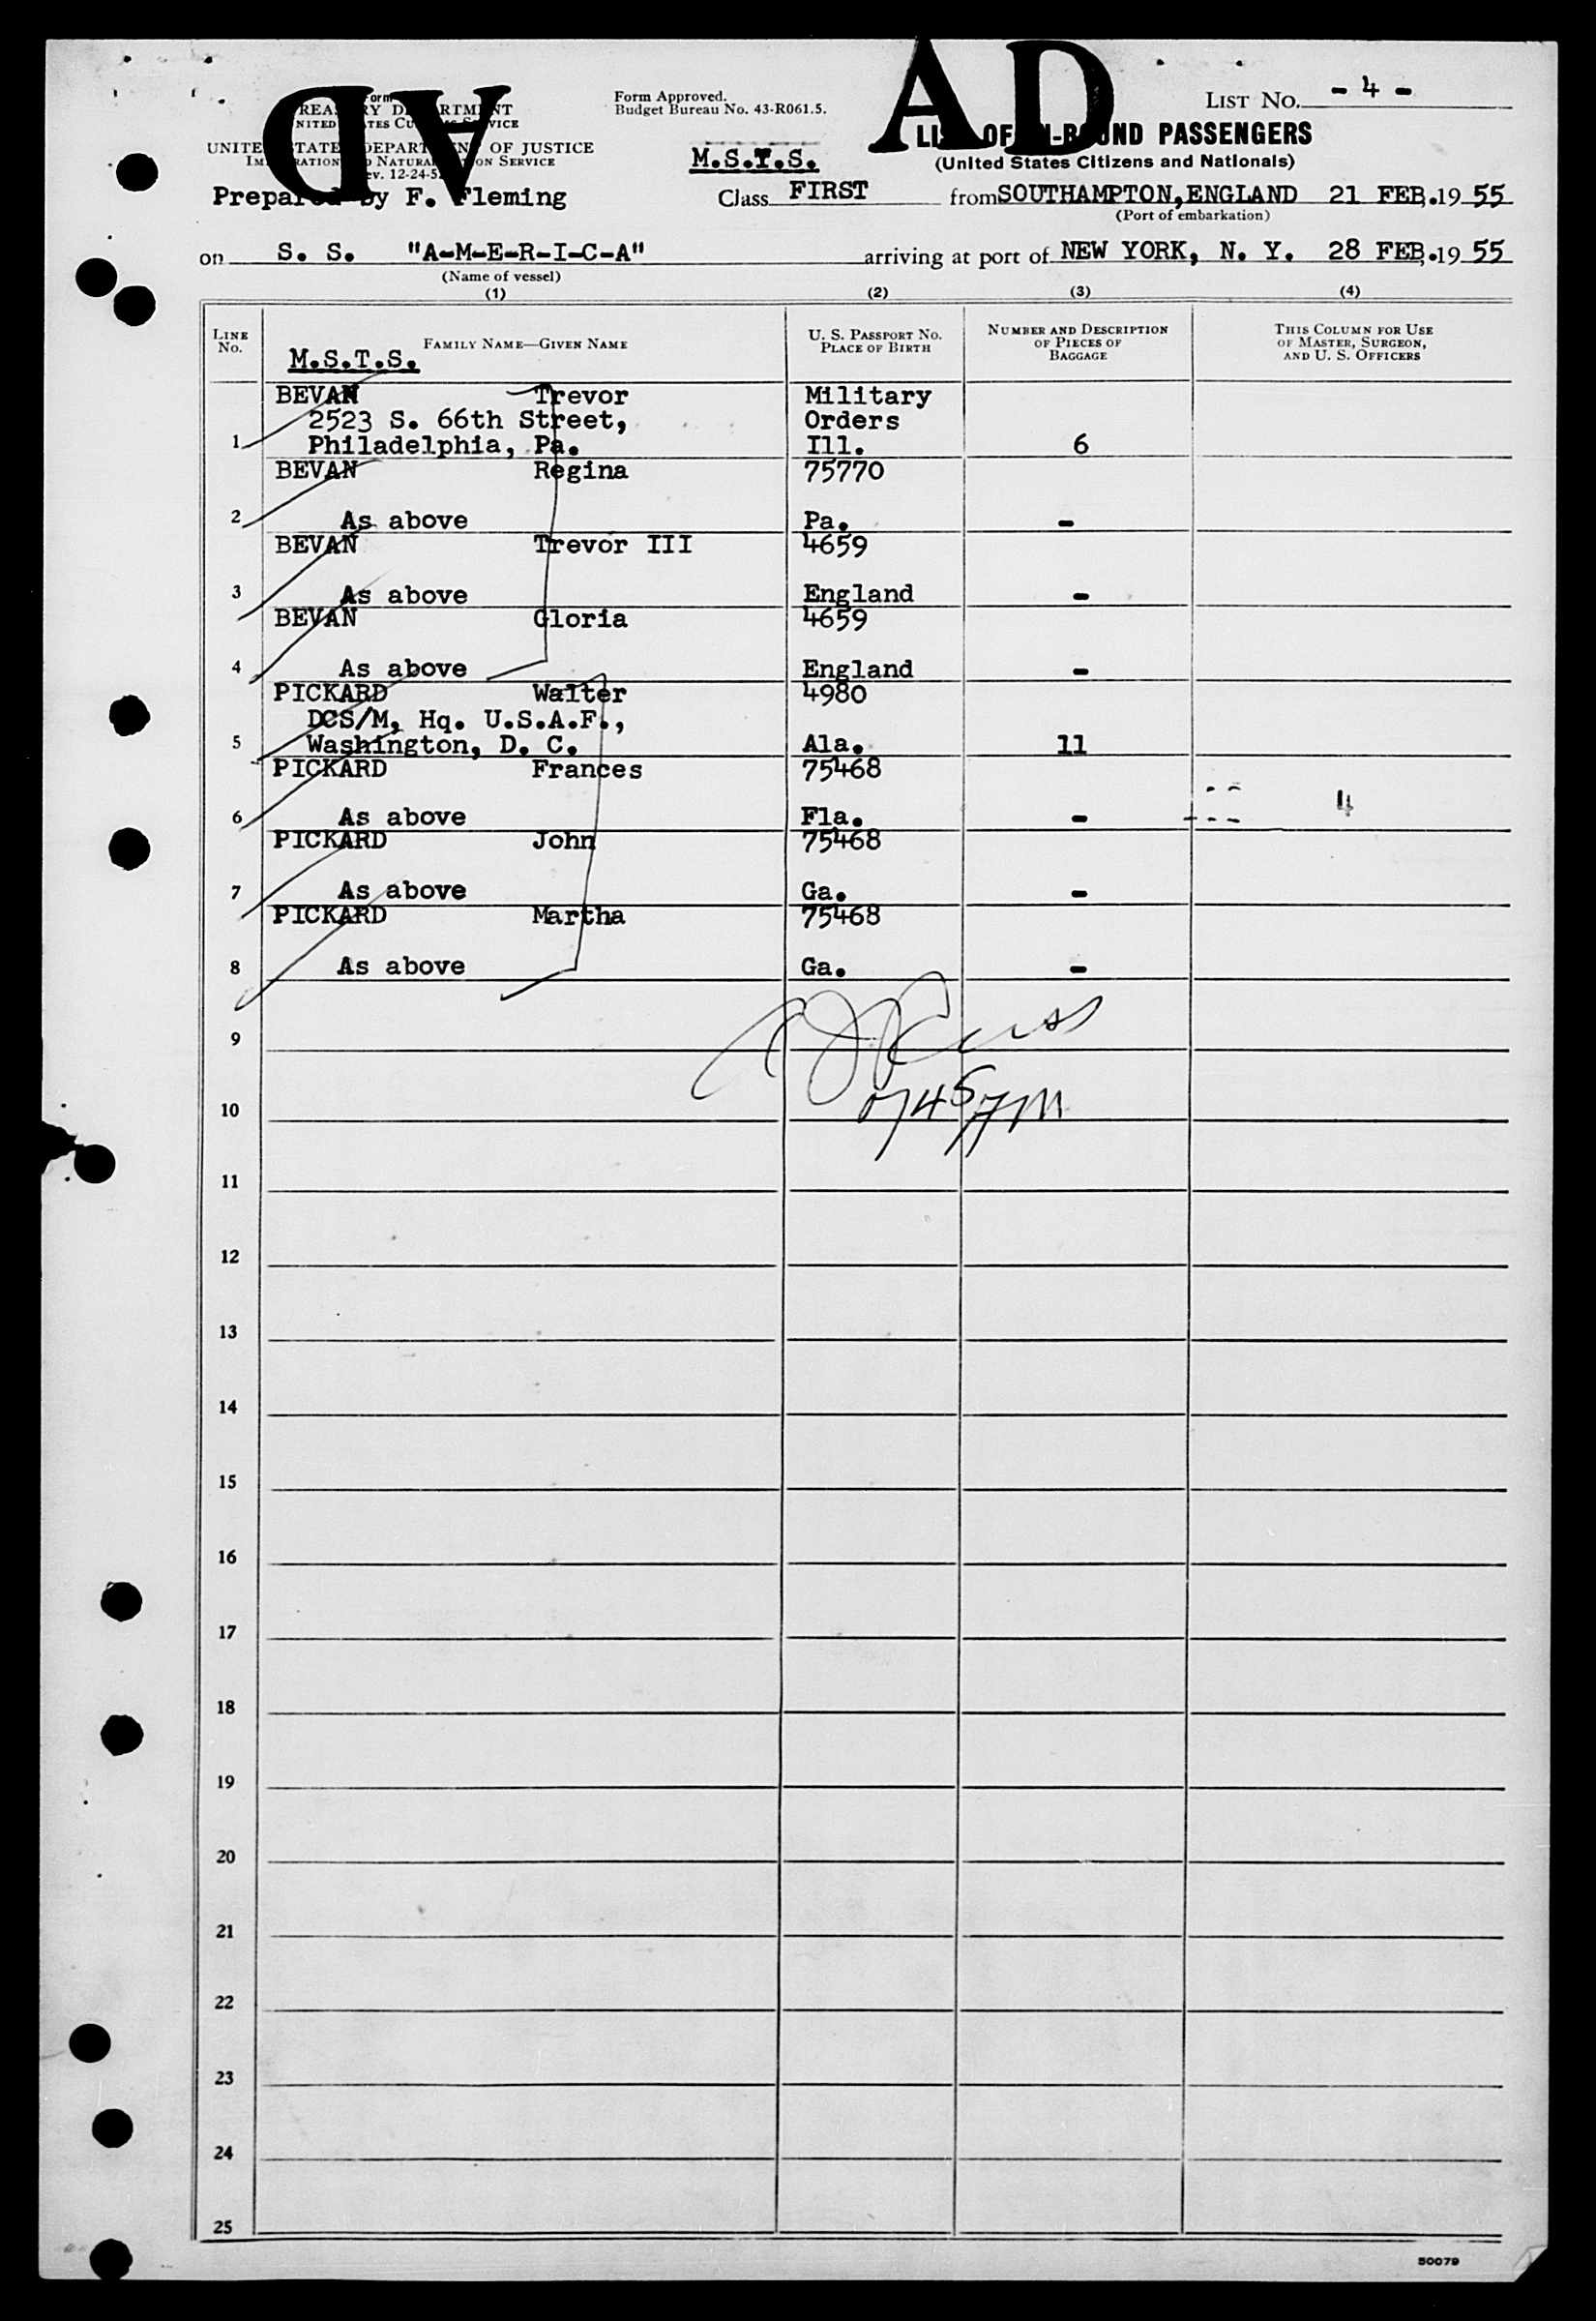 AD
AD
LIST NO. - 4 -
Form Approved.
Budget Bureau No. 43-R061.5.
LIST OF IN-BOUND PASSENGERS
(United States Citizens and Nationals)
UNITED STATES DEPARTMENT OF JUSTICE
IMMIGRATION AND NATURALIZATION SERVICE
Prepared by F. Fleming
M.S.T.S.
Class FIRST from SOUTHAMPTON, ENGLAND 21 FEB. 1955
(Port of embarkation)
on S. S. "A-M-E-R-I-C-A" arriving at port of NEW YORK, N. Y. 28 FEB. 1955
(Name of vessel)
(1) (2) (3) (4)
LINE No. FAMILY NAME—GIVEN NAME U. S. PASSPORT NO. PLACE OF BIRTH NUMBER AND DESCRIPTION OF PIECES OF BAGGAGE THIS COLUMN FOR USE OF MASTER, SURGEON, AND U. S. OFFICERS
M.S.T.S.
BEVAN Trevor Military
2523 S. 66th Street, Orders
1 Philadelphia, Pa. Ill. 6
BEVAN Regina 75770
2 As above Pa. -
BEVAN Trevor III 4659
3 As above England -
BEVAN Gloria 4659
4 As above England -
PICKARD Walter 4980
DCS/M, Hq. U.S.A.F.,
5 Washington, D. C. Ala. 11
PICKARD Frances 75468
6 As above Fla. - 4
PICKARD John 75468
7 As above Ga. -
PICKARD Martha 75468
8 As above Ga. -
9
10
11
12
13
14
15
16
17
18
19
20
21
22
23
24
25
50079